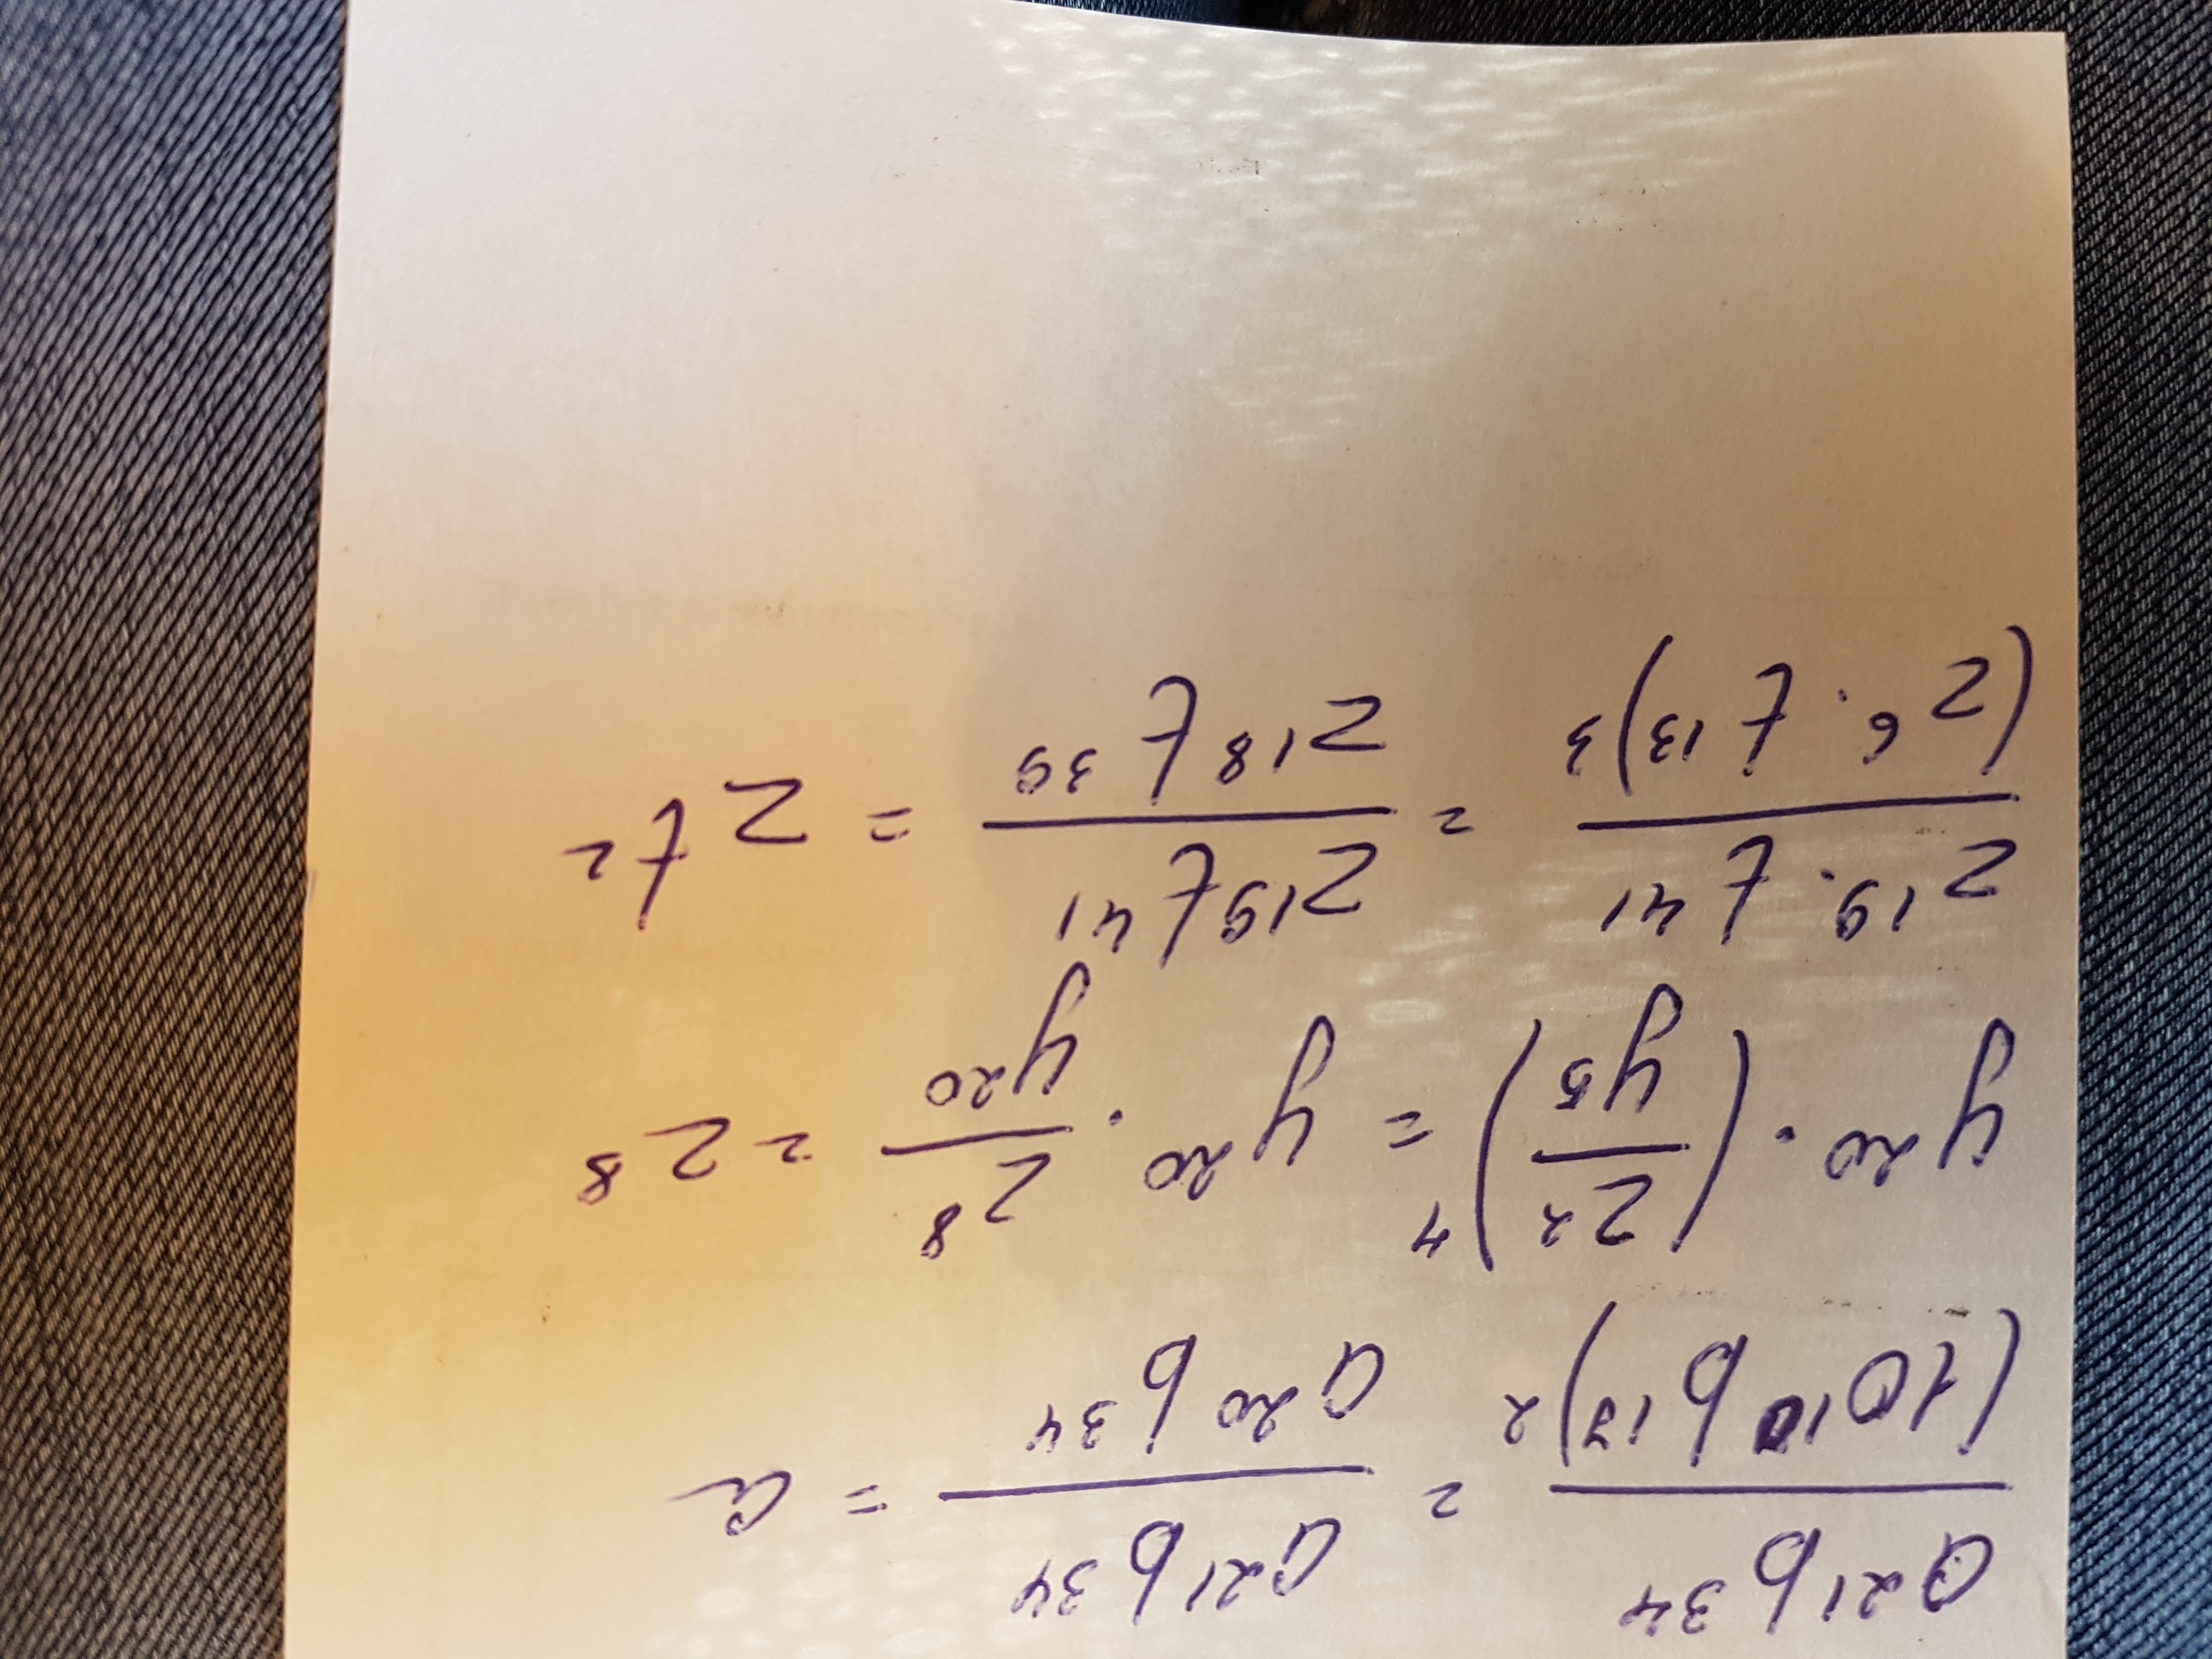 \frac{a^{21}b^{34}}{(10^{10}b^{17})^2} = \frac{a^{21}b^{34}}{a^{20}b^{34}} = a
y^{20} \cdot \left(\frac{2^2}{y^5}\right)^4 = y^{20} \cdot \frac{2^8}{y^{20}} = 2^8
\frac{z^{19} \cdot t^{41}}{(z^6 \cdot t^{13})^3} = \frac{z^{19}t^{41}}{z^{18}t^{39}} = zt^2